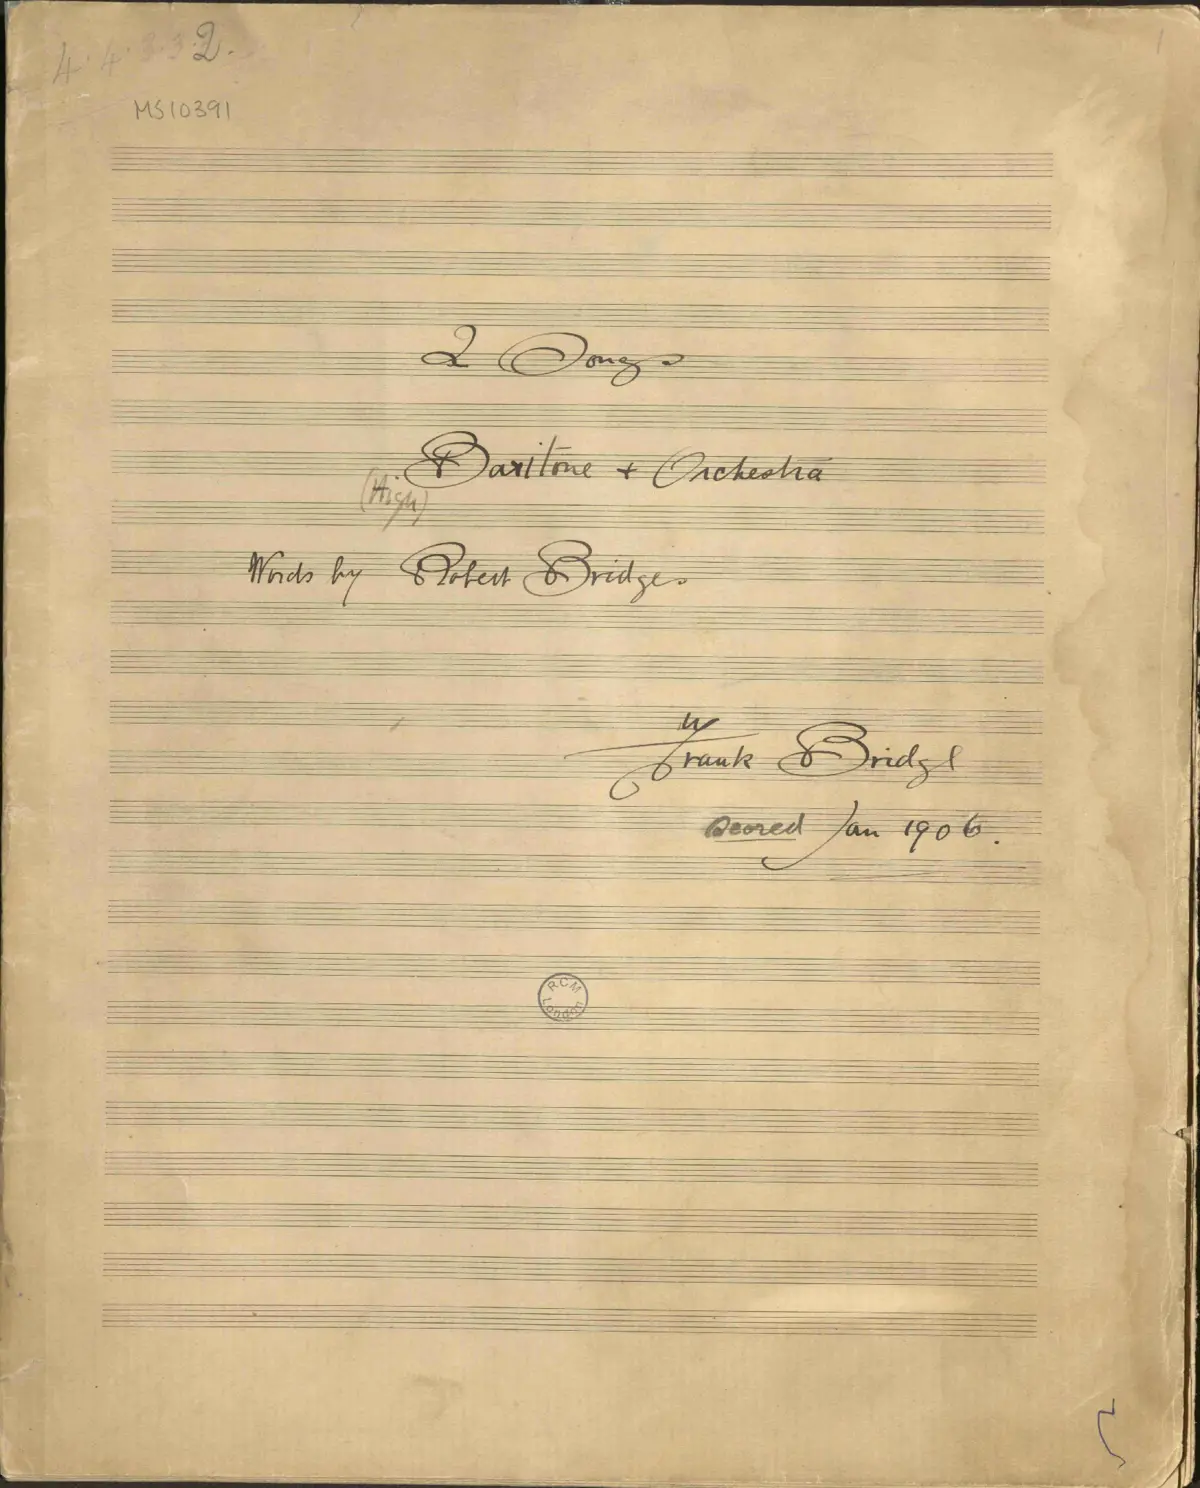 4.4.3.3.2.
MS10391
2 Songs
Baritone + Orchestra
(High)
Words by Robert Bridges
by
Frank Bridge
Scored Jan 1906.
R.C.M
London